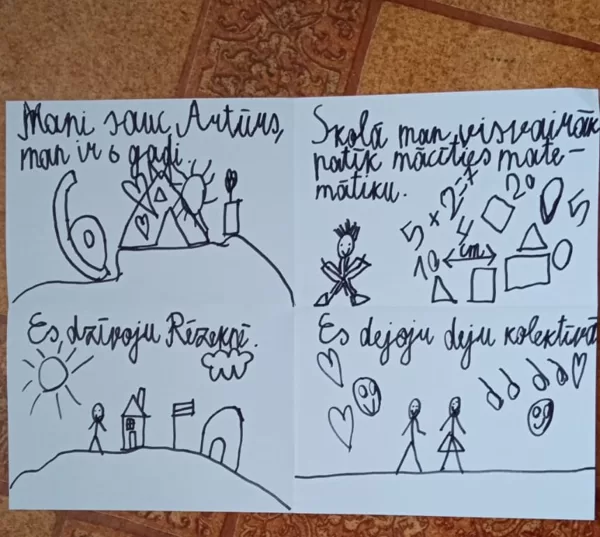 Mani sauc Artūrs,
man ir 6 gadi.
6
Skolā man visvairāk
patīk mācīties mate-
mātiku.
5 x 2 = x
20
5
4
10
cm
Es dzīvoju Rēzeknē.
Es dejoju deju kolektīvā